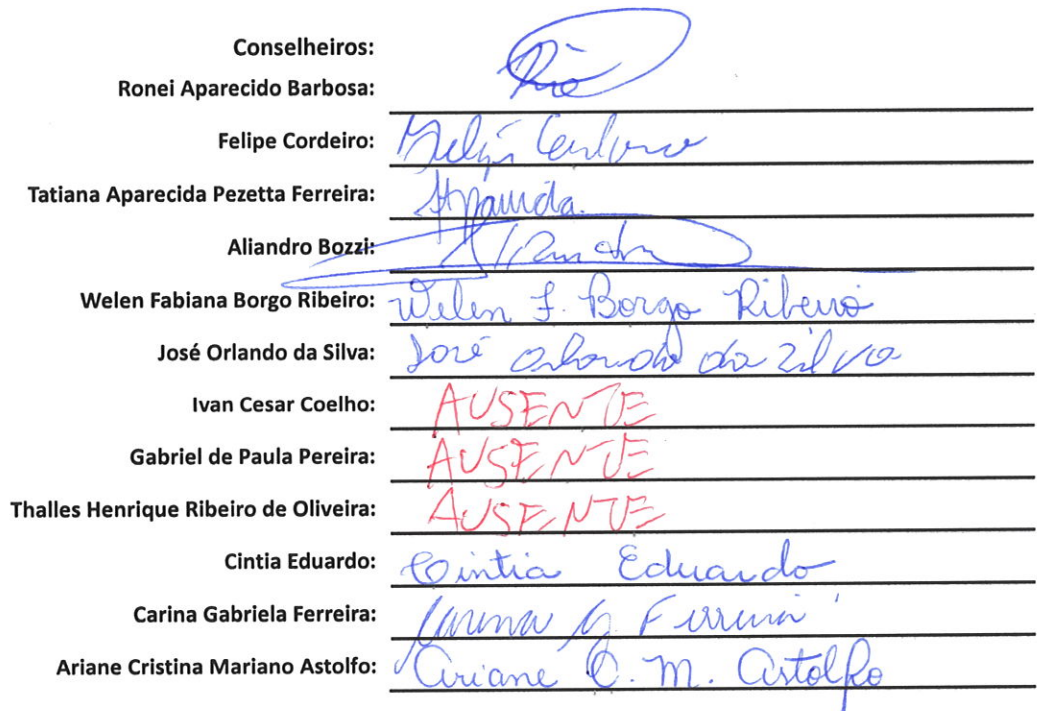 Conselheiros:
Ronei Aparecido Barbosa:
Felipe Cordeiro: Felipe Cordeiro
Tatiana Aparecida Pezetta Ferreira: Aparecida
Aliandro Bozzi:
Welen Fabiana Borgo Ribeiro: Welen F. Borgo Ribeiro
José Orlando da Silva: José Orlando da Silva
Ivan Cesar Coelho: AUSENTE
Gabriel de Paula Pereira: AUSENTE
Thalles Henrique Ribeiro de Oliveira: AUSENTE
Cintia Eduardo: Cintia Eduardo
Carina Gabriela Ferreira: Carina G. Ferreira
Ariane Cristina Mariano Astolfo: Ariane C. M. Astolfo